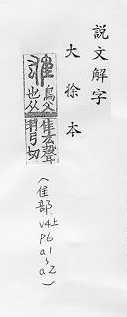 說文解字
大徐本
雄
鳥父
也从
隹厷聲
羽弓切
(隹部
v4上
p6
a1
~
a2
)